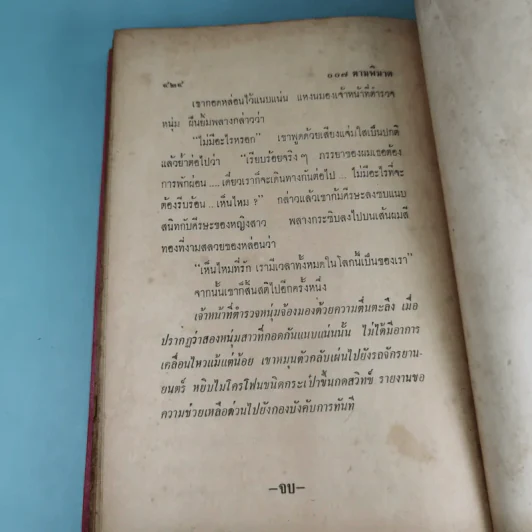 ๔๒๔
๐๐๗ ตามพิฆาต
เขากอดหล่อนไว้แนบแน่น แหงนมองเจ้าหน้าที่ตำรวจ
หนุ่ม ฝืนยิ้มพลางกล่าวว่า
"ไม่มีอะไรหรอก" เขาพูดด้วยเสียงแจ่มใสเป็นปกติ
แล้วย้ำต่อไปว่า "เรียบร้อยจริง ๆ ภรรยาของผมเธอต้อง
การพักผ่อน .... เดี๋ยวเราก็จะเดินทางกันต่อไป ... ไม่มีอะไรที่จะ
ต้องรีบร้อน .. เห็นไหม ?" กล่าวแล้วเขาก้มศีรษะลงซบแนบ
สนิทกับศีรษะของหญิงสาว พลางกระซิบลงไปบนเส้นผมสี
ทองที่งามสลวยของหล่อนว่า
"เห็นไหมที่รัก เรามีเวลาทั้งหมดในโลกนี้เป็นของเรา"
จากนั้นเขาก็สิ้นสติไปอีกครั้งหนึ่ง
เจ้าหน้าที่ตำรวจหนุ่มจ้องมองด้วยความตื่นตะลึง เมื่อ
ปรากฏว่าสองหนุ่มสาวที่กอดกันแนบแน่นนั้น ไม่ได้มีอาการ
เคลื่อนไหวแม้แต่น้อย เขาหมุนตัวกลับเผ่นไปยังรถจักรยาน-
ยนตร์ หยิบไมโครโฟนชนิดกระเป๋าขึ้นกดสวิทช์ รายงานขอ
ความช่วยเหลือด่วนไปยังกองบังคับการทันที
–จบ–